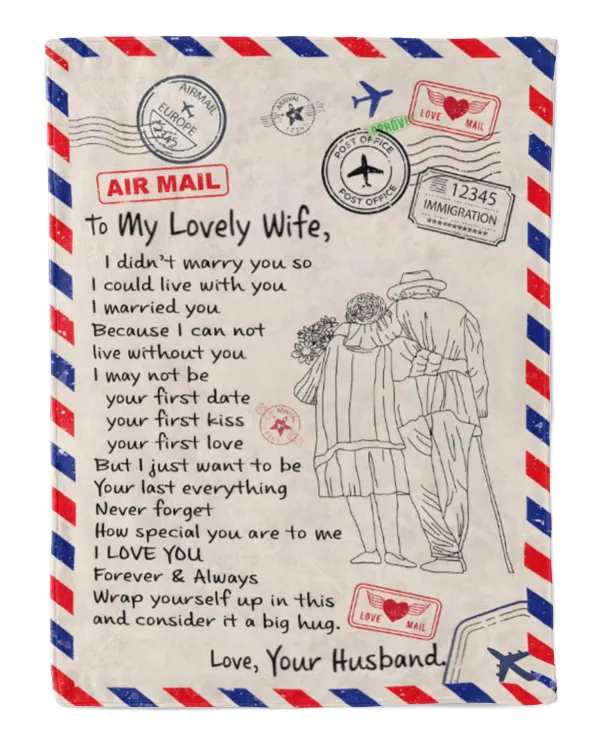 AIRMAIL
EUROPE
12345
ARRIVAL
APPROV
LOVE MAIL
POST OFFICE
POST OFFICE
12345
IMMIGRATION
AIR MAIL
To My Lovely Wife,
I didn't marry you so
I could live with you
I married you
Because I can not
live without you
I may not be
your first date
your first kiss
your first love
But I just want to be
Your last everything
Never forget
How special you are to me
I LOVE YOU
Forever & Always
Wrap yourself up in this
and consider it a big hug.
LOVE MAIL
Love, Your Husband.